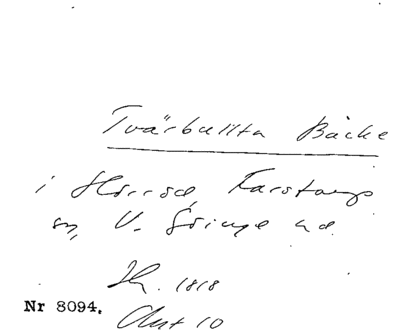 Tvärbullta Bäcke
i Hörröd, Karstorps
sn, V. Göinge hd.
Sk. 1818
Nr 8094.
Akt 10